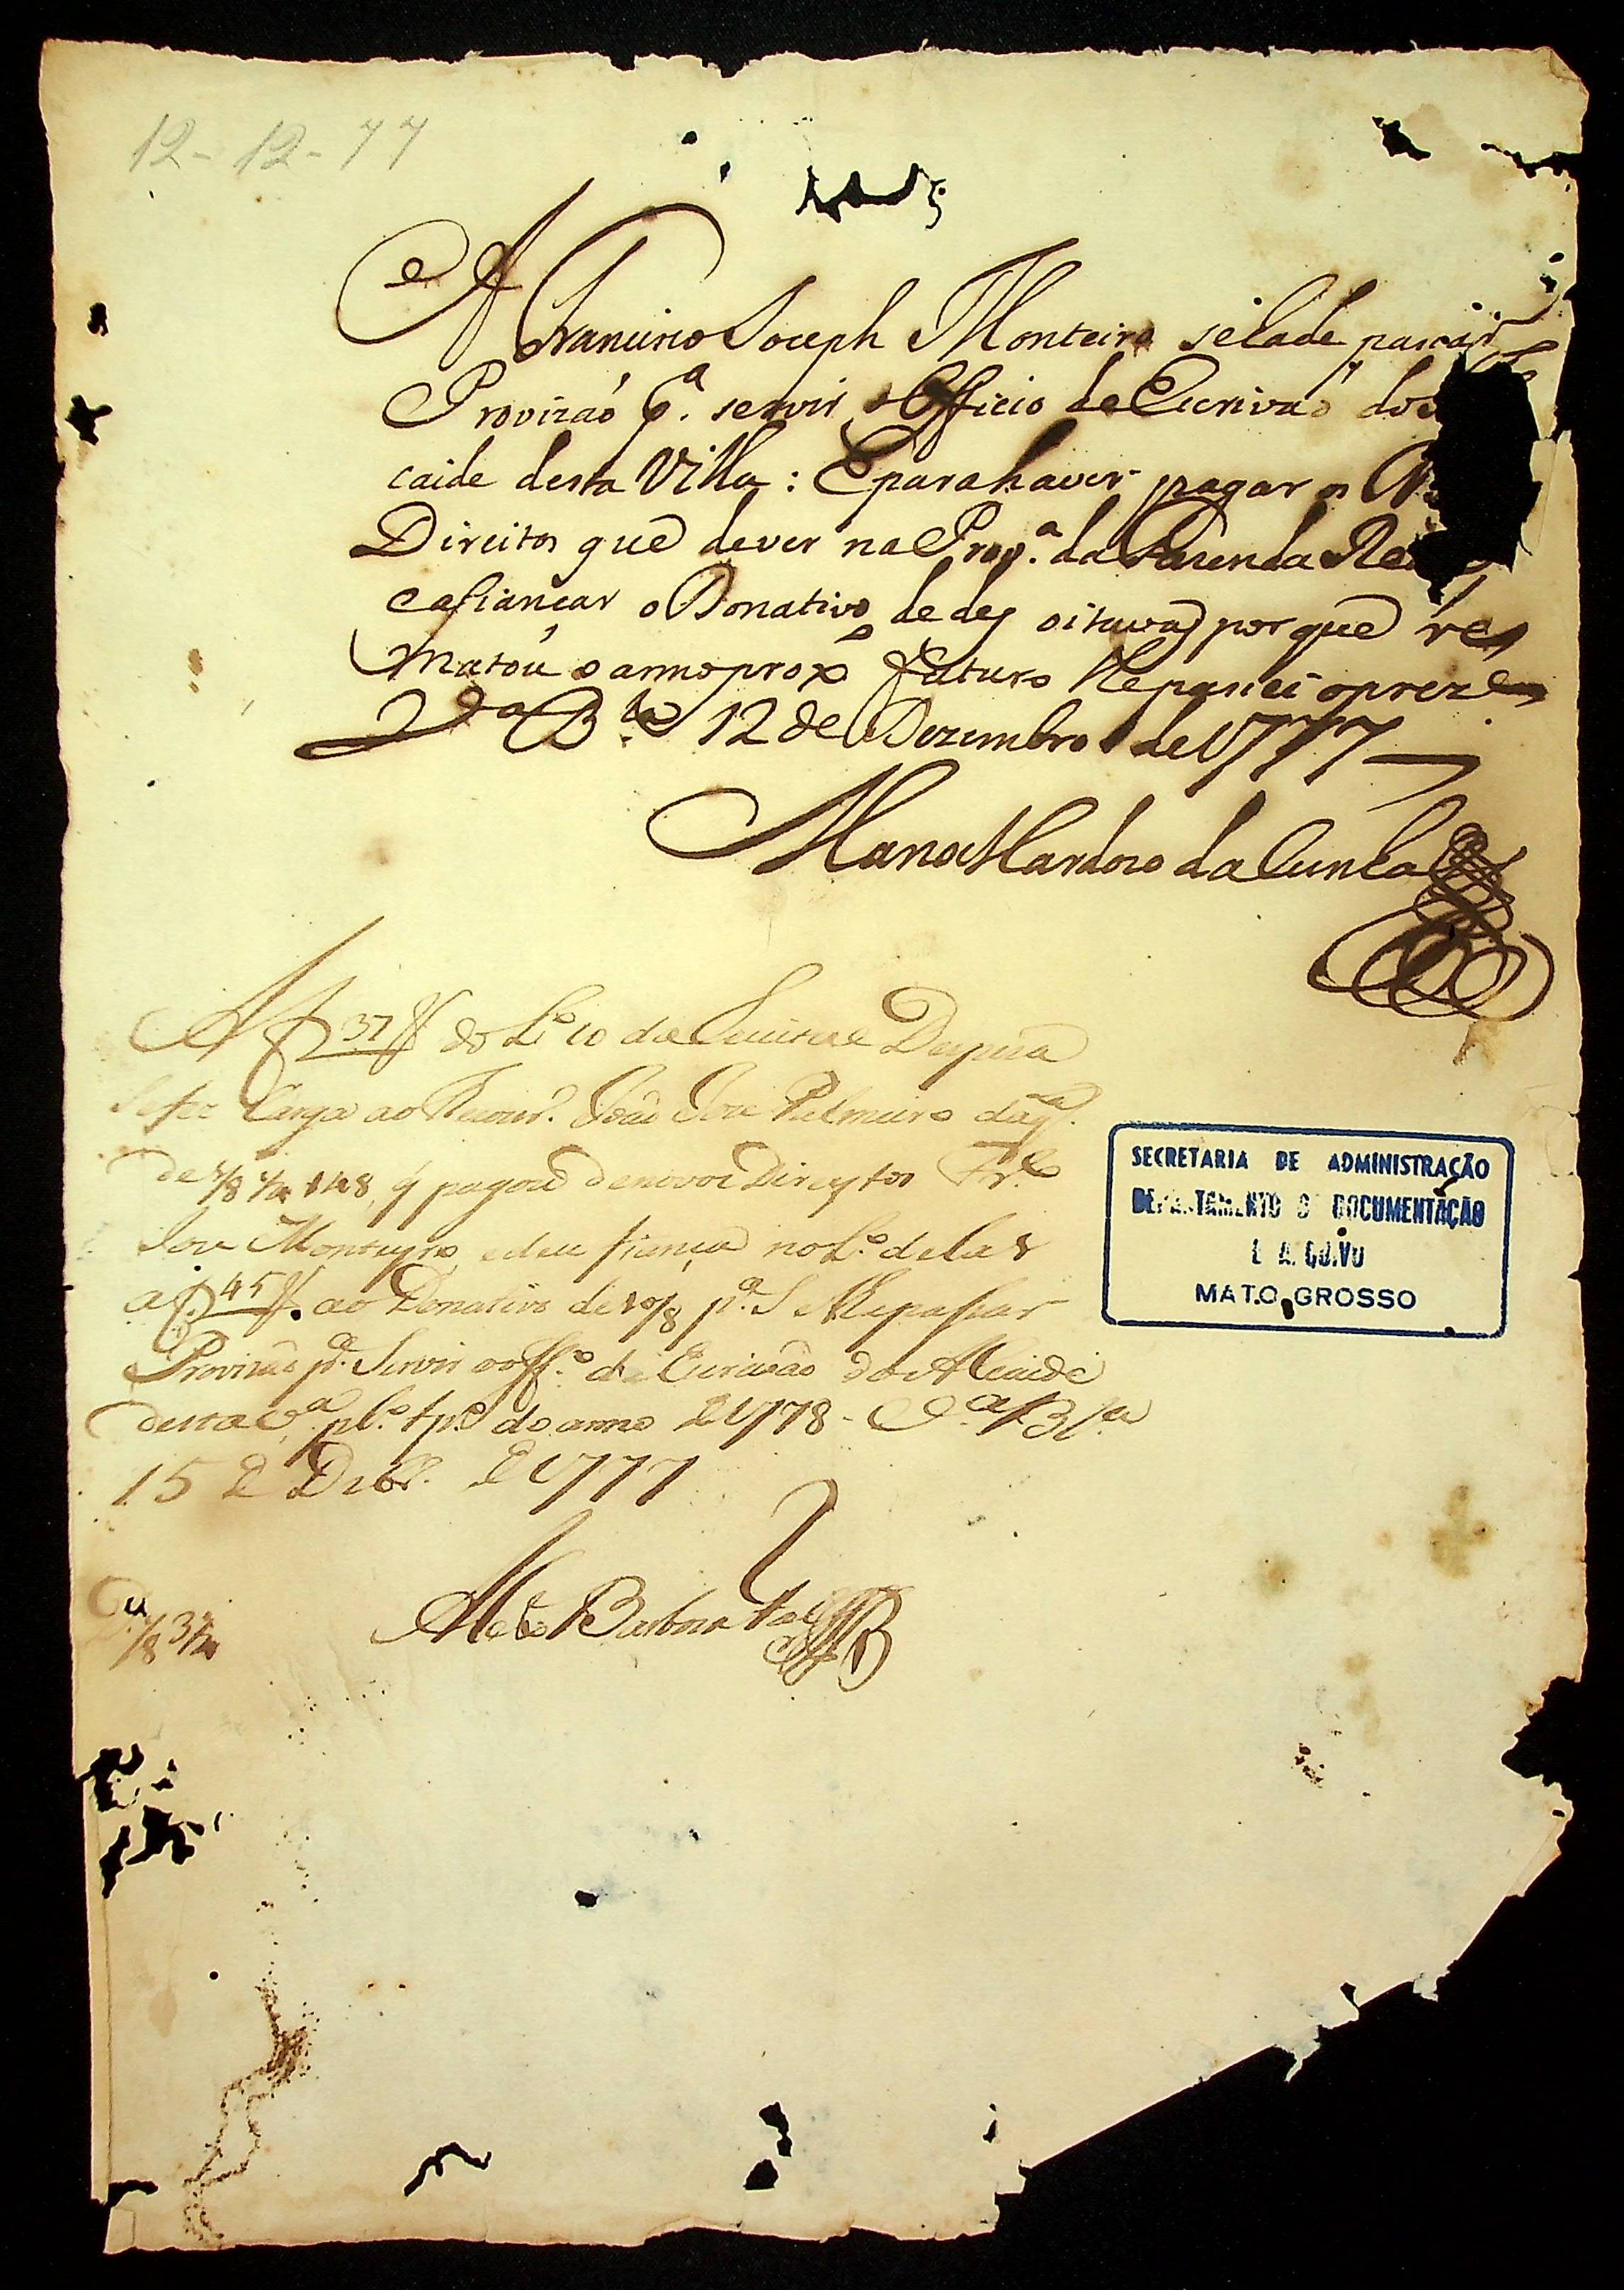 12-12-77
A Francisco Joseph Monteiro se lade passar
Provizaó p.ª servir o Officio de Escrivaó do
caide desta Villa: E para haver pagar os
Direitos que dever na Prov.ª da Fazenda
e afiançar o Donativo de dez oitavas porque re
matou o anno proxº futuro lhe passei o prezen
V.ª B.ª 12 de Dezembro de 1777
Manoel Cardozo da Cunha
A f 37 do L.º 10 da Receita e Despeza
Se fez Carga ao Thezour.º João Joze
de 1/8 3/4 q pagou de novos Direytos Fr.co
Joze Monteyro, e deu fiança no L.º delas
a f 45 ao Donativo de 10/8 p.ª Se lhe passar
Provizaõ p.ª Servir o Off.º de Escrivaõ do Alcaide
desta V.ª pl.º tp.º do anno de 1778 - V.ª B.ª
15 de Dezbr.º de 1777
Barboza
1/8 3/4
SECRETARIA DE ADMINISTRAÇÃO
DEPARTAMENTO DE DOCUMENTAÇÃO
E ARQUIVO
MATO GROSSO